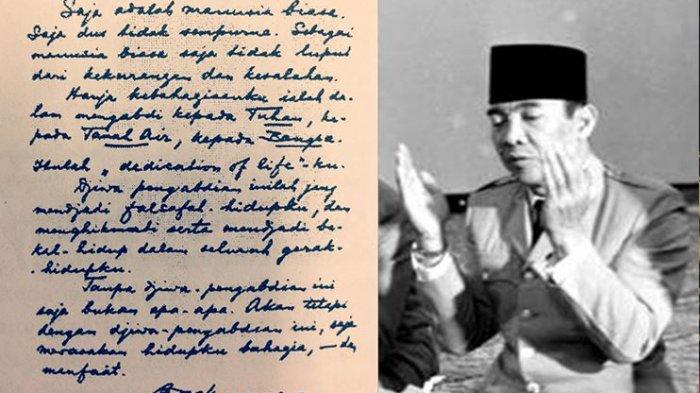 Saja adalah manusia biasa.
Saja dus tidak sempurna. Sebagai
manusia biasa saja tidak luput
dari kekurangan dan kesalahan.
Hanja kebahagiaanku ialah da-
lam mengabdi kepada Tuhan, ke-
pada Tanah Air, kepada Bangsa.
Itulah „dedication of life"-ku.
Djiwa pengabdian inilah jang
mendjadi falsafah-hidupku, dan
menghikmati serta mendjadi be-
kal-hidup dalam seluruh gerak-
hidupku.
Tanpa djiwa-pengabdian ini
saja bukan apa-apa. Akan tetapi
dengan djiwa-pengabdian ini, saja
merasakan hidupku bahagia, – dan
manfaat.